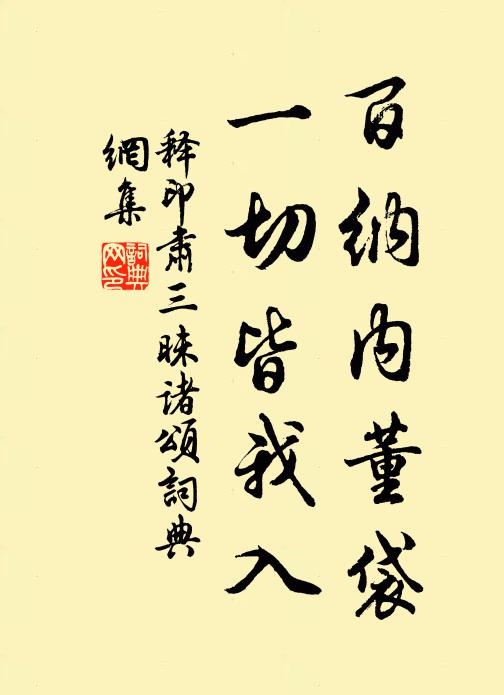 百纳内董袋
一切皆我入
释印肃三昧诸颂词典
网集
詞典
网印